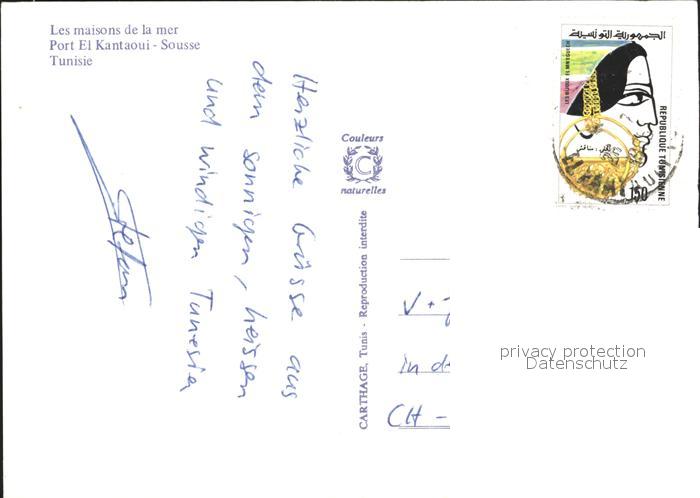 Les maisons de la mer
Port El Kantaoui - Sousse
Tunisie
Herzliche Grüsse aus
dem sonnigen, heissen
und windigen Tunesien
Stefan
Couleurs
C
naturelles
CARTHAGE, Tunis - Reproduction interdite
الجمهورية التونسية
LES BIJOUX EL MNEGUECH
REPUBLIQUE TUNISIENNE
150
V +
in d
CH -
privacy protection
Datenschutz